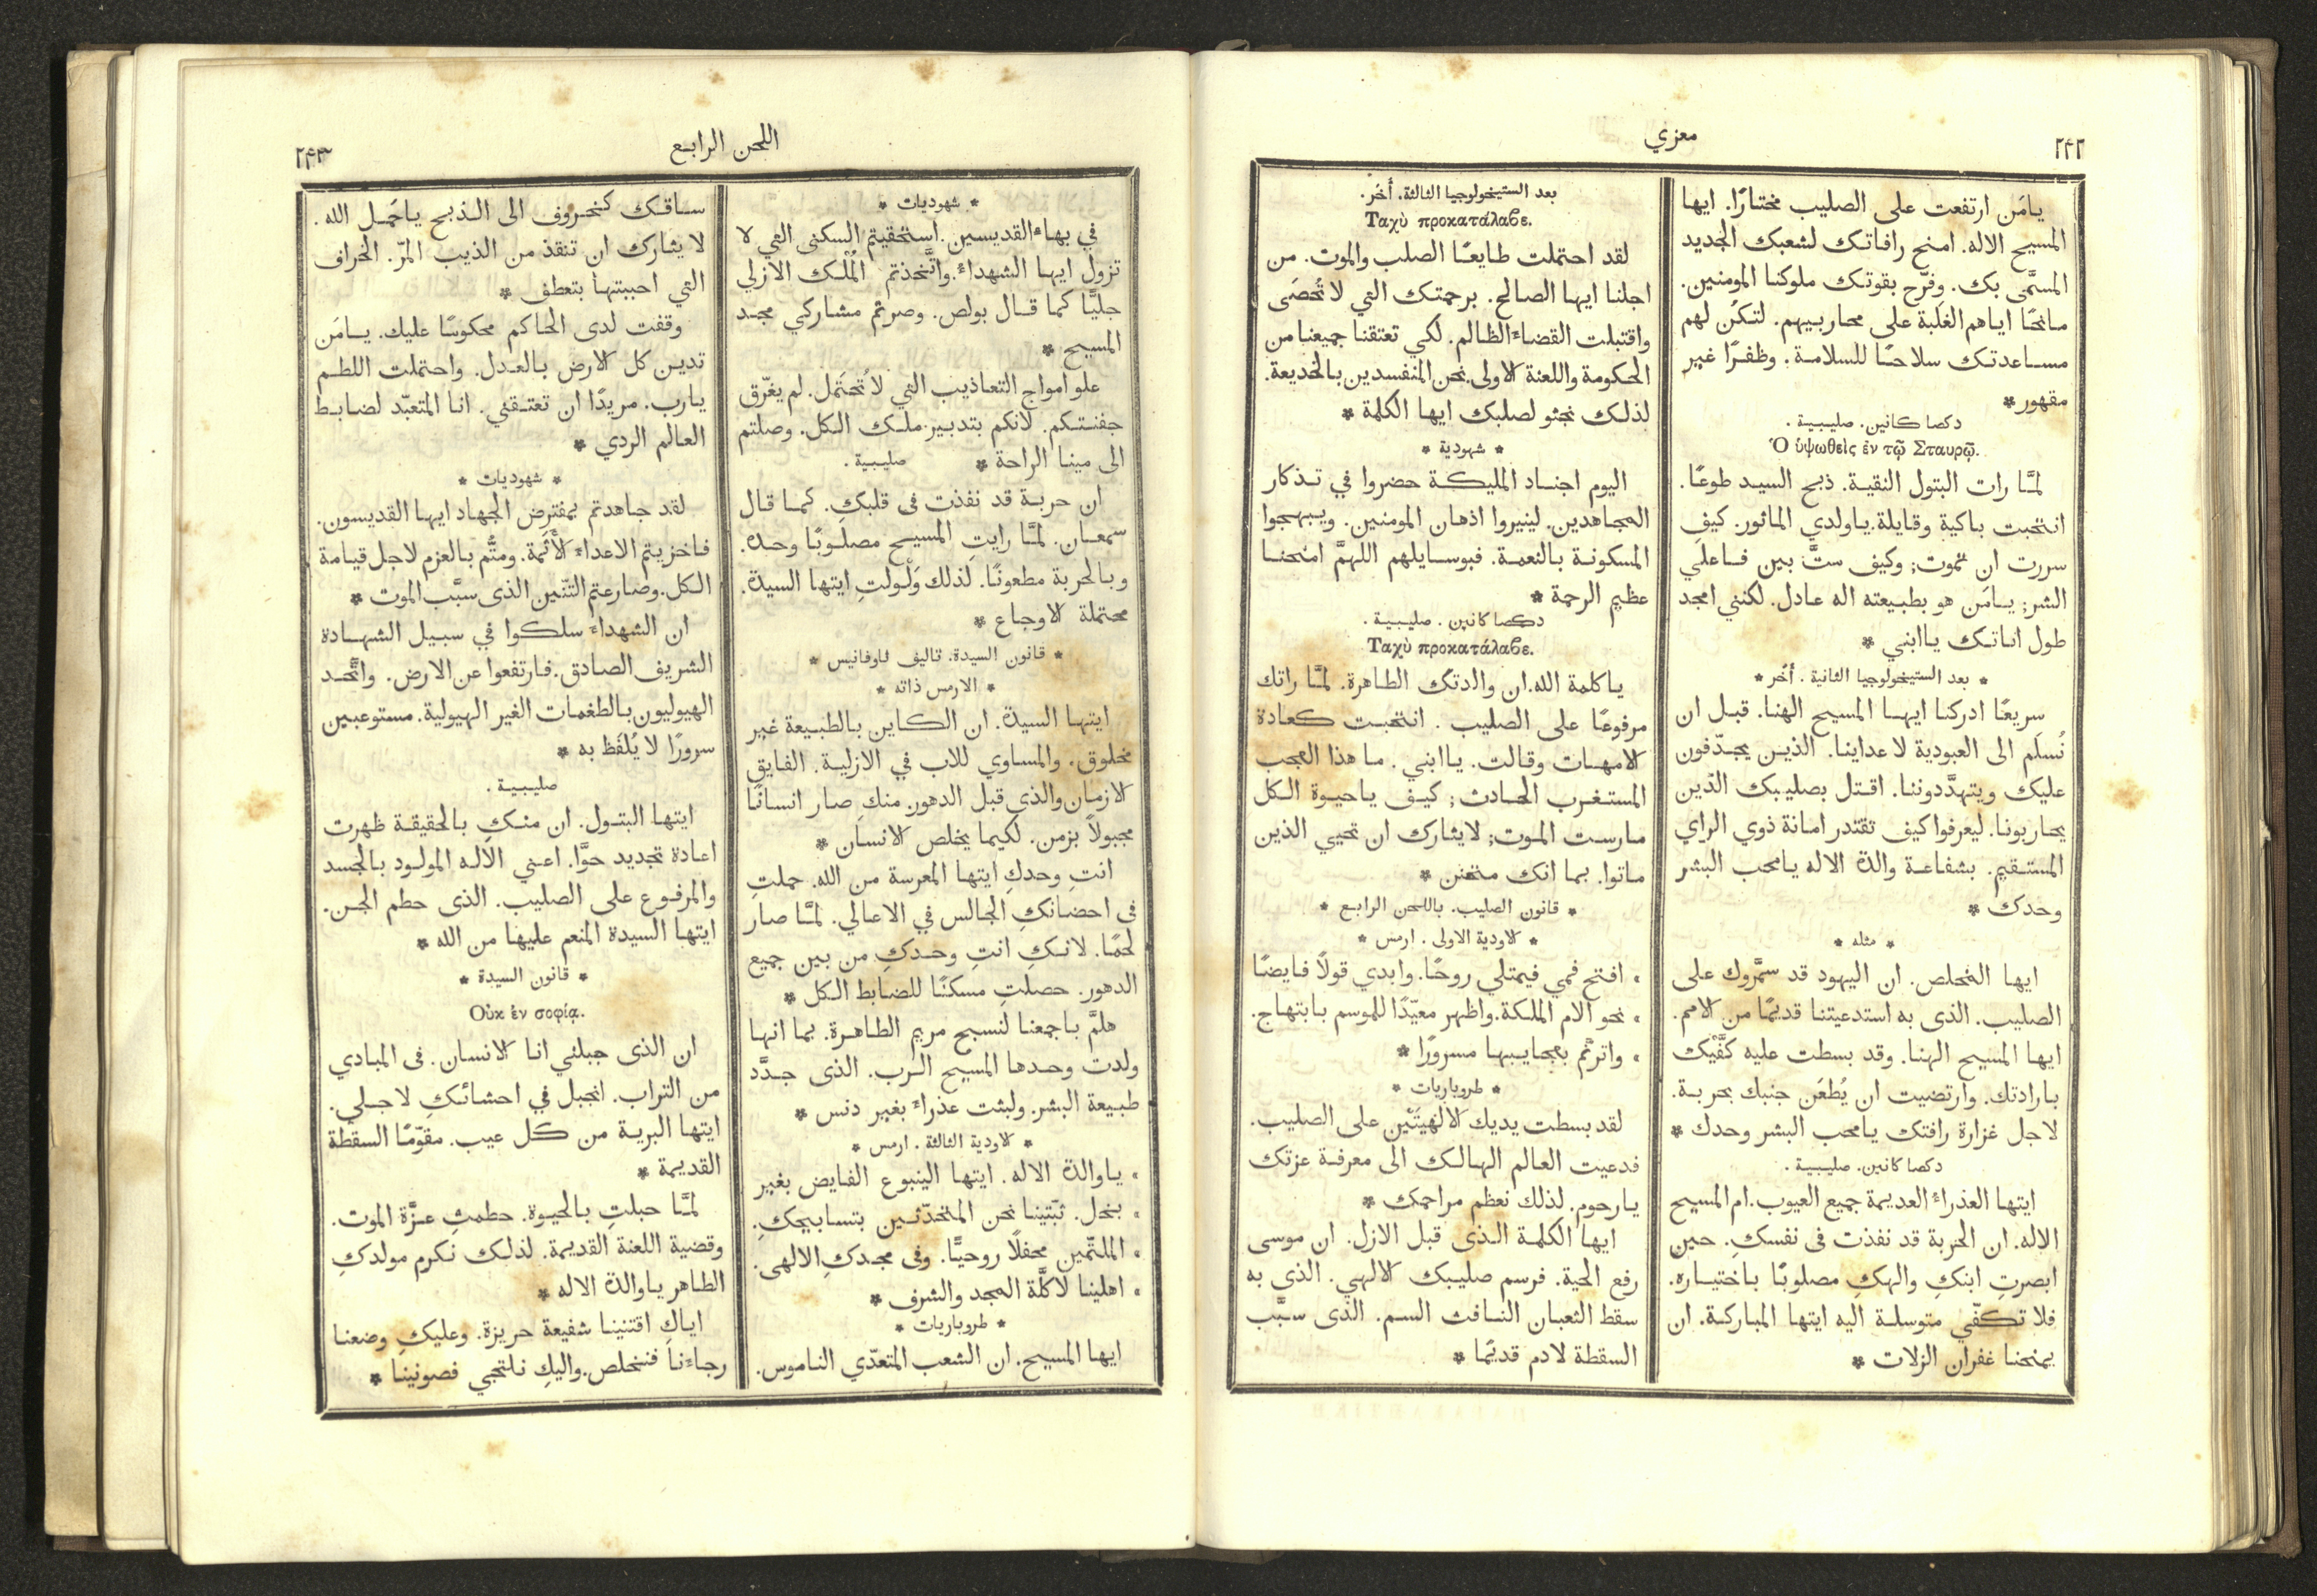 ٢٤٢
معزي
يامَن ارتفعت على الصليب مختارًا. ايها
المسيح الاله. امنح رافاتك لشعبك الجديد
المسمَّى بك. وفرّح بقوتك ملوكنا المومنين.
مانحًا اياهم الغلَبة على محاربيهم. لتكُن لهم
مساعدتك سلاحًا للسلامة. وظفرًا غير
مقهور *
دكصا كانين. صليبية.
Ὁ ὑψωθεὶς ἐν τῷ Σταυρῷ.
لمَّا رات البتول النقية. ذبح السيد طوعًا.
انتحبت باكية وقايلة. ياولدي الماثور. كيف
سررت ان تموت; وكيف متَّ بين فاعلَي
الشر; يامَن هو بطبيعته اله عادل. لكنني امجد
طول اناتك ياابني *
* بعد الستيخولوجيا الثانية. أُخَر *
سريعًا ادركنا ايها المسيح الهنا. قبل ان
نُسلَم الى العبودية لاعداينا. الذين يجدّفون
عليك ويتهدَّدوننا. اقتل بصليبك الذين
يحاربونا. ليعرفوا كيف تقتدر امانة ذوي الراي
المستقيم. بشفاعة والدة الاله يامحب البشر
وحدك *
* مثله *
ايها المخلص. ان اليهود قد سمَّروك على
الصليب. الذى به استدعيتنا قديمًا من الامم.
ايها المسيح الهنا. وقد بسطت عليه كفَّيك
بارادتك. وارتضيت ان يُطعَن جنبك بحربة.
لاجل غزارة رافتك يامحب البشر وحدك *
دكصا كانين. صليبية.
ايتها العذراء العديمة جميع العيوب. ام المسيح
الاله. ان الحربة قد نفذت فى نفسكِ. حين
ابصرتِ ابنكِ والهكِ مصلوبًا باختياره.
فلا تكفّي متوسلة اليه ايتها المباركة. ان
يمنحنا غفران الزلات *
بعد الستيخولوجيا الثالثة. أُخَر.
Ταχὺ προκατάλαβε.
لقد احتملت طايعًا الصلب والموت. من
اجلنا ايها الصالح. برحمتك التي لا تُحصَى
واقتبلت القضاء الظالم. لكي تعتقنا جميعنا من
الحكومة واللعنة الاولى. نحن المنفسدين بالخديعة.
لذلك نجثو لصلبك ايها الكلمة *
* شهودية *
اليوم اجناد المليكة حضروا في تذكار
المجاهدين. لينيروا اذهان المومنين. ويبهجوا
المسكونة بالنعمة. فبوسايلهم اللهمَّ امنحنا
عظيم الرحمة *
دكصا كانين. صليبية.
Ταχὺ προκατάλαβε.
ياكلمة الله. ان والدتك الطاهرة. لمَّا راتك
مرفوعًا على الصليب. انتحبت كعادة
الامهات وقالت. ياابني. ما هذا العجب
المستغرب الحادث; كيف ياحيوة الكل
مارست الموت; لايثارك ان تحيي الذين
ماتوا. بما انك متحنن *
* قانون الصليب. باللحن الرابع *
* الاودية الاولى. ارمس *
» افتح فمي فيمتلي روحًا. وابدي قولاً فايضًا
» نحو الام الملكة. واظهر معيّدًا للموسم بابتهاج.
» واترنَّم بعجايبها مسرورًا *
* طروباريات *
لقد بسطت يديك الالهيتَيْن على الصليب.
فدعيت العالم الهالك الى معرفة عزتك
يارحوم. لذلك نعظم مراحمك *
ايها الكلمة الذى قبل الازل. ان موسى
رفع الحية. فرسم صليبك الالهي. الذى به
سقط الثعبان النافث السم. الذى سبَّب
السقطة لادم قديمًا *
اللحن الرابع
٢٤٣
* شهوديات *
في بهاء القديسين. استحقيتم السكنى التي لا
تزول ايها الشهداء. واتَّخذتم المُلْك الازلي
جليًّا كما قال بولص. وصرتم مشاركي مجد
المسيح *
علو امواج التعاذيب التي لا تُحتَمل. لم يغرّق
جفنتكم. لانكم بتدبير ملك الكل. وصلتم
الى مينا الراحة * صليبية.
ان حربة قد نفذت فى قلبكِ. كما قال
سمعان. لمَّا رايتِ المسيح مصلوبًا وحده.
وبالحربة مطعونًا. لذلك وَلْولتِ ايتها السيدة.
محتملة الاوجاع *
* قانون السيدة. تاليف ثاوفانيس *
* الارمس ذاته *
ايتها السيدة. ان الكاين بالطبيعة غير
مخلوق. والمساوي للاب في الازلية. الفايق
الازمان والذي قبل الدهور. منكِ صار انسانًا
مجبولاً بزمن. لكيما يخلص الانسان *
انتِ وحدكِ ايتها المعرسة من الله. حملتِ
فى احضانكِ الجالس في الاعالي. لمَّا صار
لحمًا. لانكِ انتِ وحدكِ من بين جميع
الدهور. حصلتِ مسكنًا للضابط الكل *
هلمَّ باجمعنا لنسبح مريم الطاهرة. بما انها
ولدت وحدها المسيح الرب. الذى جدَّد
طبيعة البشر. ولبثت عذراء بغير دنس *
* الاودية الثالثة. ارمس *
» ياوالدة الاله. ايتها الينبوع الفايض بغير
» بخل. ثبّتينا نحن المتحدّثين بتسابيحكِ.
» الملتئمين محفلاً روحيًّا. وفى مجدكِ الالهى.
» اهلينا لاكلَّة المجد والشرف *
* طروباريات *
ايها المسيح. ان الشعب المتعدّي الناموس.
ساقك كخروف الى الذبح ياحَمل الله.
لايثارك ان تنقذ من الذيب المرّ. الخراف
التي احببتها بتعطف *
وقفت لدى الحاكم محكومًا عليك. يامَن
تدين كل الارض بالعدل. واحتملت اللطم
يارب. مريدًا ان تعتقني. انا المتعبّد لضابط
العالم الردي *
* شهوديات *
لقد جاهدتم بمفترض الجهاد ايها القديسون.
فاخزيتم الاعداء الأَثَمة. ومتُّم بالعزم لاجل قيامة
الكل. وصارعتم التنّين الذى سبَّب الموت *
ان الشهداء سلكوا في سبيل الشهادة
الشريف الصادق. فارتفعوا عن الارض. واتَّحد
الهيوليون بالطغمات الغير الهيولية. مستوعبين
سرورًا لا يُلفَظ به *
صليبية.
ايتها البتول. ان منكِ بالحقيقة ظهرت
اعادة تجديد حوَّا. اعني الاله المولود بالجسد
والمرفوع على الصليب. الذى حطم الجن.
ايتها السيدة المنعم عليها من الله *
* قانون السيدة *
Οὐκ ἐν σοφίᾳ.
ان الذى جبلني انا الانسان. فى المبادي
من التراب. انجبل في احشائكِ لاجلي.
ايتها البرية من كل عيب. مقوّمًا السقطة
القديمة *
لمَّا حبلتِ بالحيوة. حطمتِ عزَّة الموت.
وقضية اللعنة القديمة. لذلك نكرم مولدكِ
الطاهر ياوالدة الاله *
اياكِ اقتنينا شفيعة حريزة. وعليكِ وضعنا
رجاءَنا فنخلص. واليكِ نلتجي فصونينا *